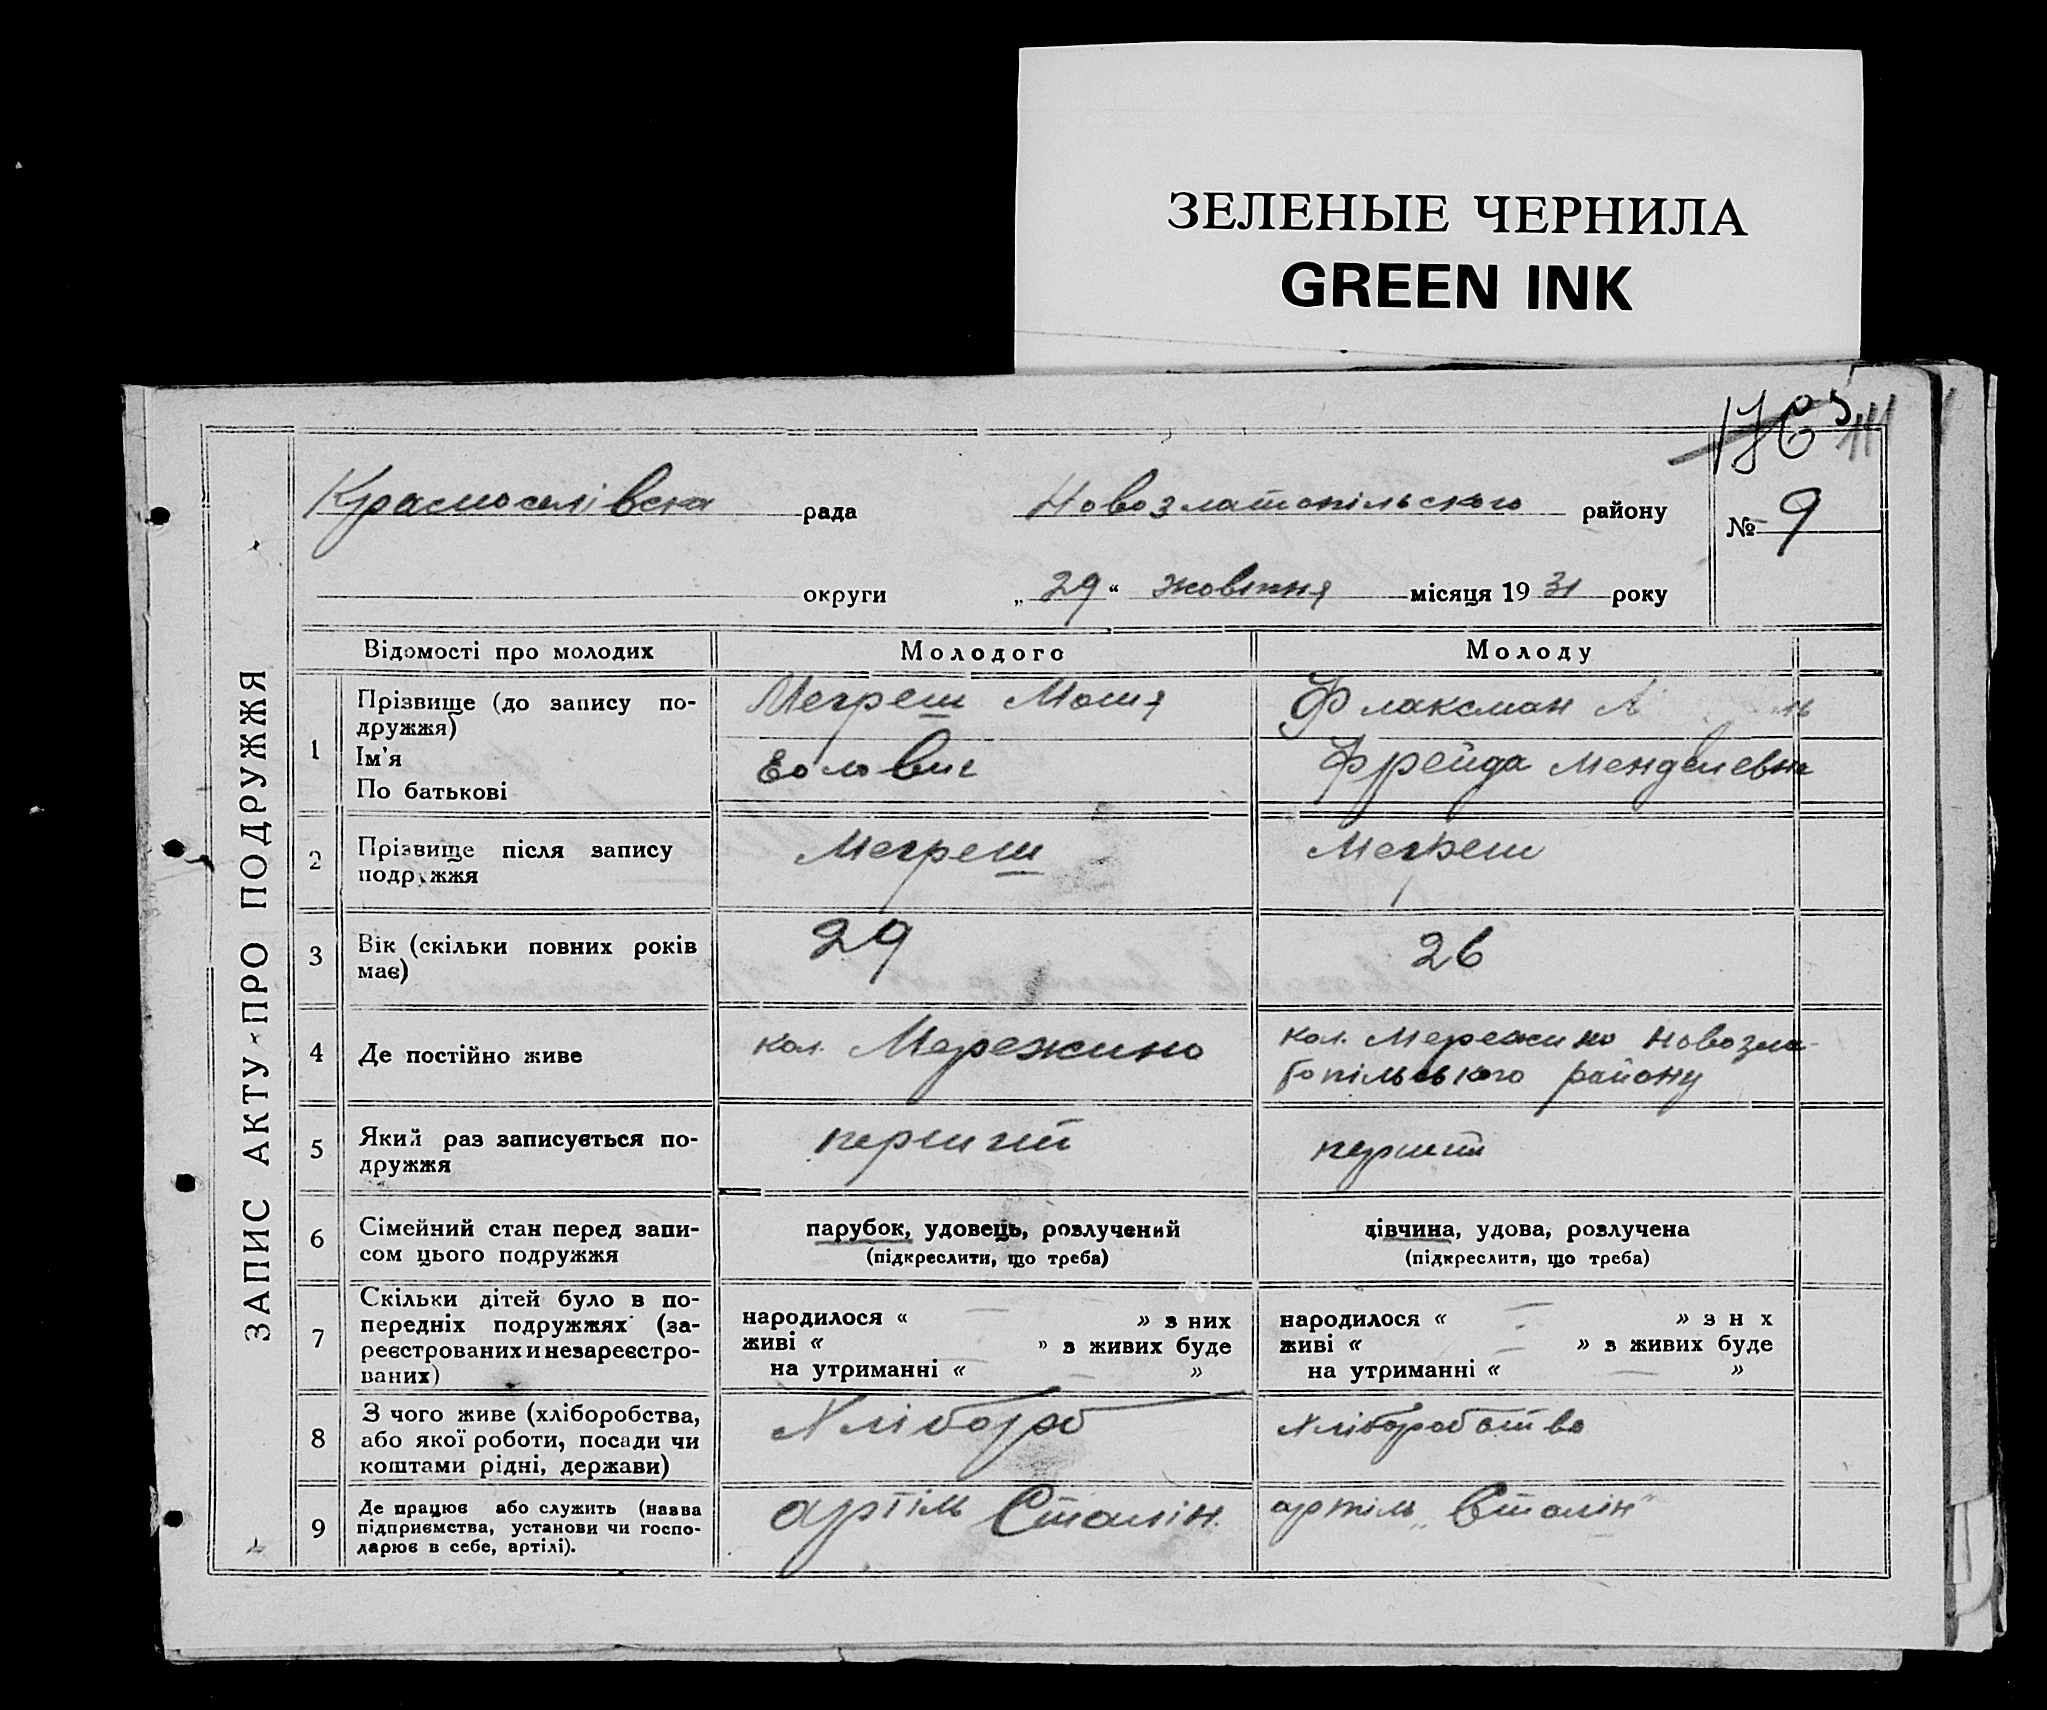 ЗЕЛЕНЫЕ ЧЕРНИЛА
GREEN INK
176
Красноселівска рада Новозлатопільского району
№ 9
округи „ 29 “ жовтня місяця 19 31 року
ЗАПИС АКТУ ПРО ПОДРУЖЖЯ
Відомості про молодих Молодого Молоду
1 Прізвище (до запису по-
дружжя)
Ім'я
По батькові
Меґреш Мошя
Флаксман
Фрейда Менделевна
2 Прізвище після запису
подружжя
Мегреш Мегреш
3 Вік (скільки повних років
має)
29 26
4 Де постійно живе
кол. Мережино
кол. Мережино Новозла-
топільського району
5 Який раз записується по-
дружжя
перший перший
6 Сімейний стан перед запи-
сом цього подружжя
парубок, удовець, розлучений
(підкреслити, що треба)
дівчина, удова, розлучена
(підкреслити, що треба)
7 Скільки дітей було в по-
передніх подружжях (за-
реєстрованих и незареєстро-
ваних)
народилося « — » з них
живі « — » з живих буде
на утриманні « — »
народилося « — » з н х
живі « — » з живих буде
на утриманні « — »
8 З чого живе (хліборобства,
або якої роботи, посади чи
коштами рідні, держави)
Хлібороб Хліборобство
9 Де працює або служить (назва
підприємства, установи чи госпо-
дарює в себе, артілі).
артіль Сталін. артіль „Сталін"